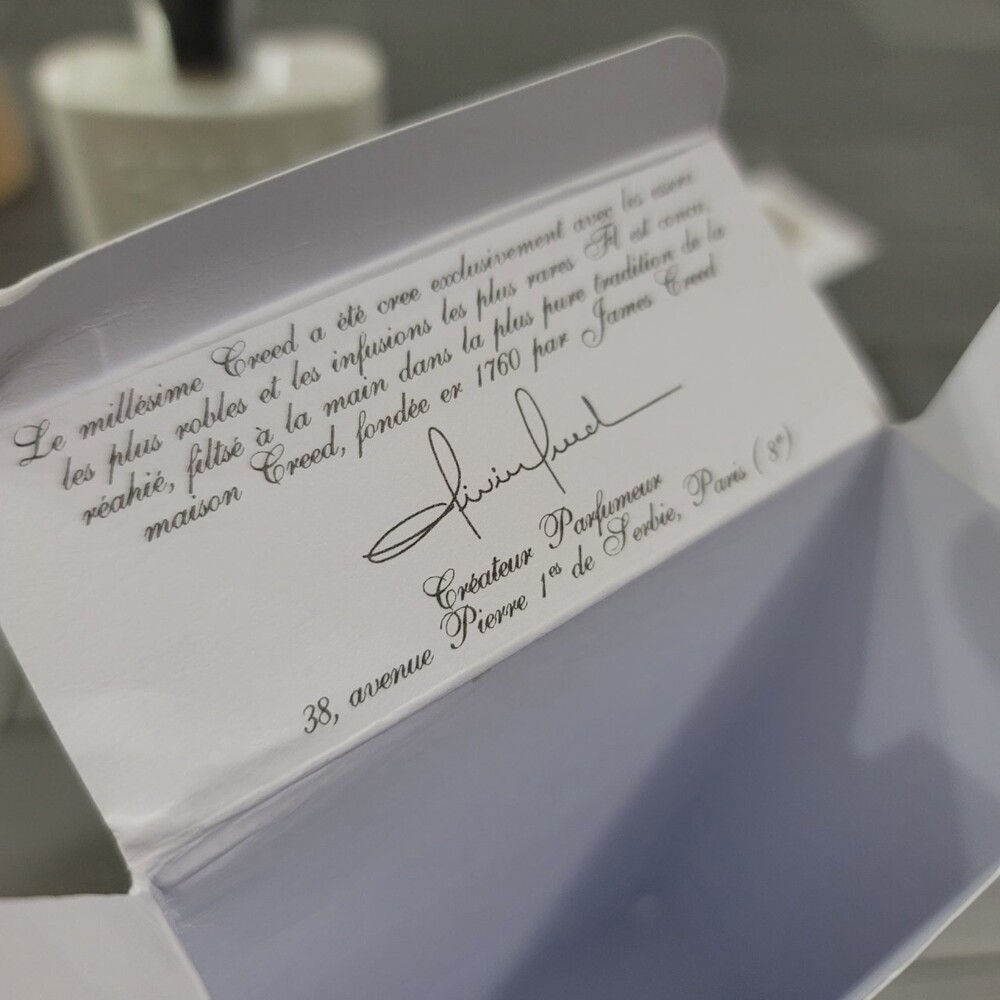 Le millésime Creed a été cree exclusivement avec les
les plus robles et les infusions les plus rares Fl est concu,
réahié, filtsé à la main dans la plus pure tradition de la
maison Creed, fondée er 1760 par James Creed
Créateur Parfumeur
Pierre 1es de Serbie, Paris (8e)
38, avenue